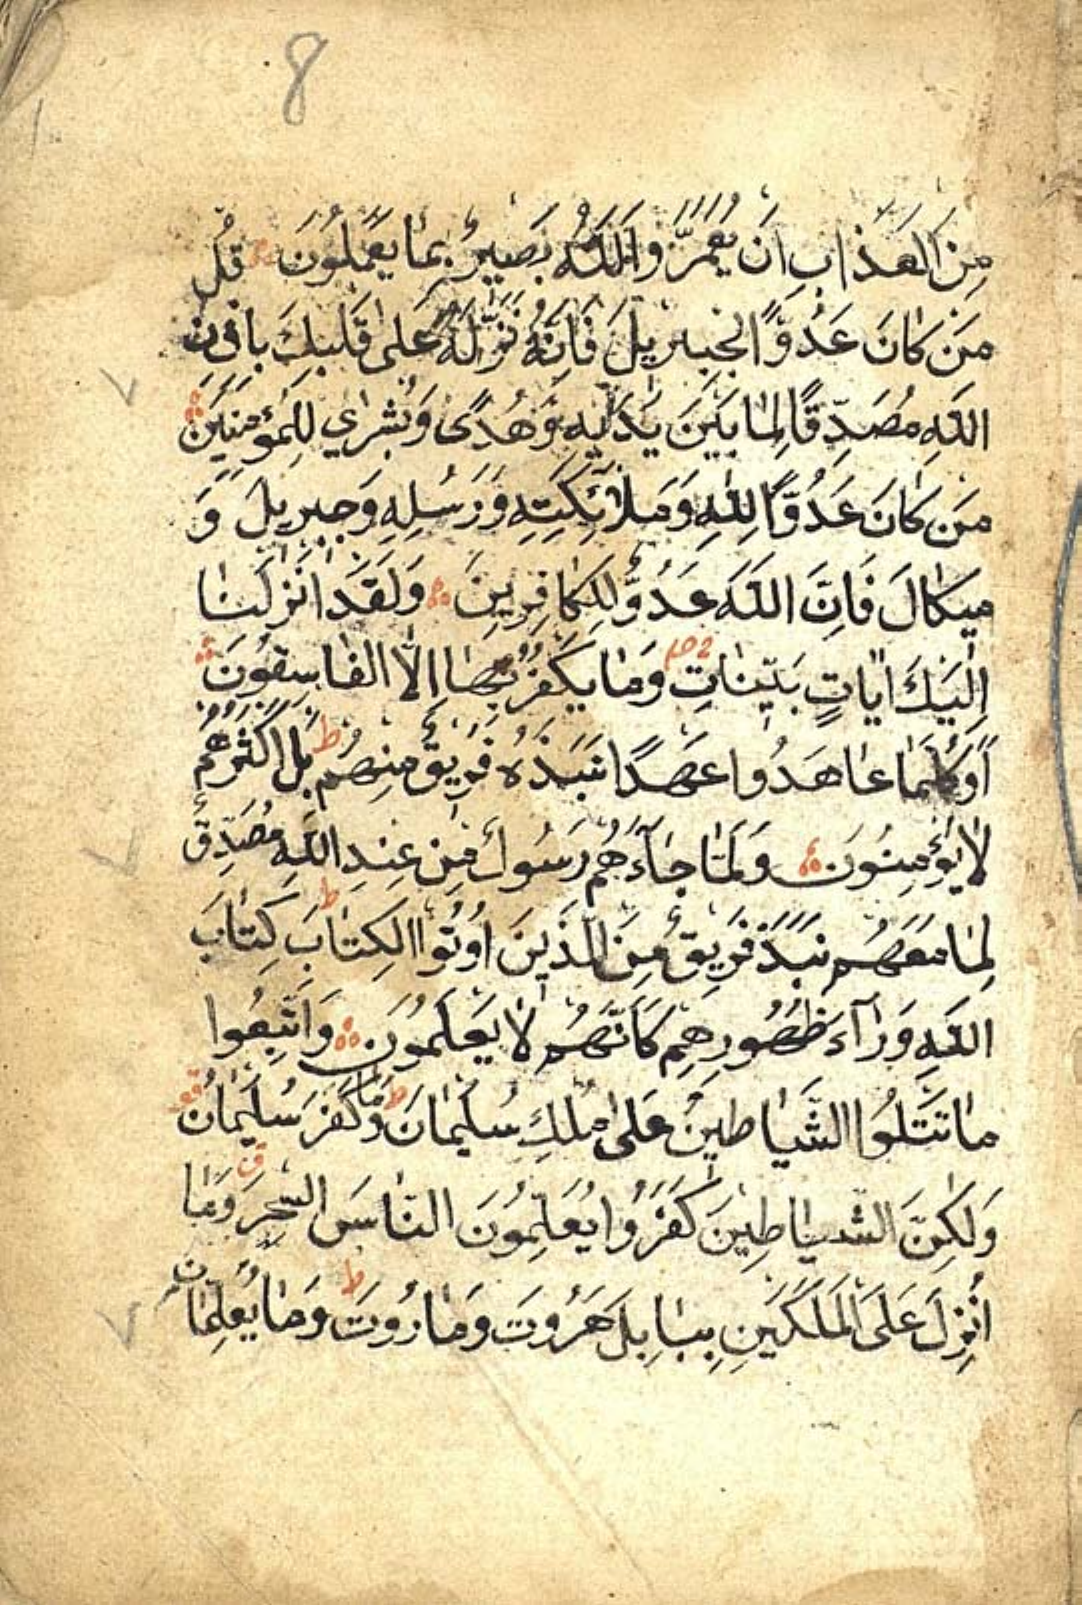 8
مِنَ الْعَذَابِ اَنْ يُعَمَّرَ وَاللّٰهُ بَصِيرٌ بِمَا يَعْمَلُونَ قُلْ
مَنْ كَانَ عَدُوًّا لِجِبْرِيلَ فَاِنَّهُ نَزَّلَهُ عَلٰى قَلْبِكَ بِاِذْنِ
اللّٰهِ مُصَدِّقًا لِمَا بَيْنَ يَدَيْهِ وَهُدًى وَبُشْرٰي لِلْمُؤْمِنِينَ
مَنْ كَانَ عَدُوًّا لِلّٰهِ وَمَلٰٓائِكَتِهِ وَرَسُلِهِ وَجِبْرِيلَ وَ
مِيكَالَ فَاِنَّ اللّٰهَ عَدُوٌّ لِلْكَافِرِينَ وَلَقَدْ اَنْزَلْنَا
اِلَيْكَ اٰيَاتٍ بَيِّنَاتٍ وَمَا يَكْفُرُ بِهَا اِلَّا الْفَاسِقُونَ
اَوَكُلَّمَا عَاهَدُوا عَهْدًا نَبَذَهُ فَرِيقٌ مِنْهُمْ ط بَلْ اَكْثَرُهُمْ
لَا يُؤْمِنُونَ وَلَمَّا جَآءَهُمْ رَسُولٌ مِنْ عِنْدِ اللّٰهِ مُصَدِّقٌ
لِمَا مَعَهُمْ نَبَذَ فَرِيقٌ مِنَ الَّذِينَ اُوتُوا الْكِتَابَ ط كِتَابَ
اللّٰهِ وَرَآءَ ظُهُورِهِمْ كَاَنَّهُمْ لَا يَعْلَمُونَ وَاتَّبَعُوا
مَا تَتْلُوا الشَّيَاطِينُ عَلٰى مُلْكِ سُلَيْمَانَ ط وَمَا كَفَرَ سُلَيْمَانُ
وَلٰكِنَّ الشَّيَاطِينَ كَفَرُوا يُعَلِّمُونَ النَّاسَ السِّحْرَ ق وَمَا
اُنْزِلَ عَلَى الْمَلَكَيْنِ بِبَابِلَ هَرُوتَ وَمَارُوتَ ط وَمَا يُعَلِّمَانِ